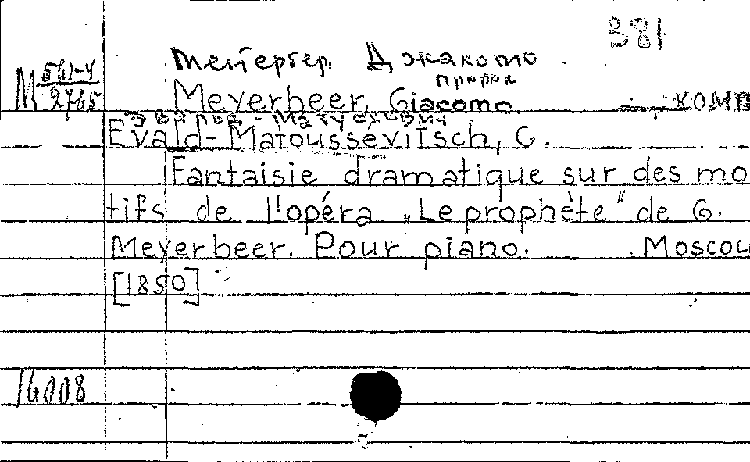 381
Мейербер, Джакомо
М 561-4/2765
пророк
Meyerbeer, Giacomo — КОМП
Эвальд-Матусевич
Evald-Matoussévitsch, G.
Fantaisie dramatique sur des mo
tifs de l'opéra „Le prophète" de G.
Meyerbeer. Pour piano. Moscou
[1850]
16008